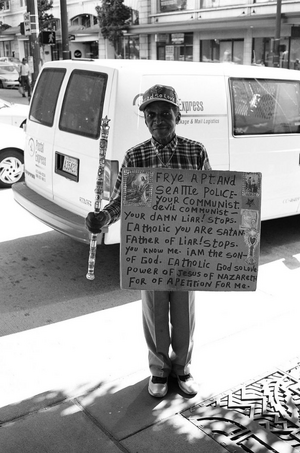 Express
age & Mail Logistics
FRYE APT AND
SEATTLE POLICE-
YOUR COMMUNIST
devil COMMUNIST-
YOUR DAMN LIAR! STOPS.
CATHOLIC YOU ARE SATAN
FATHER OF LIAR! STOPS.
YOU KNOW ME. IAM THE SON-
OF GOD. CATHOLIC GOD
POWER OF JESUS OF NAZARETH
FOR OF A PETITION FOR ME.